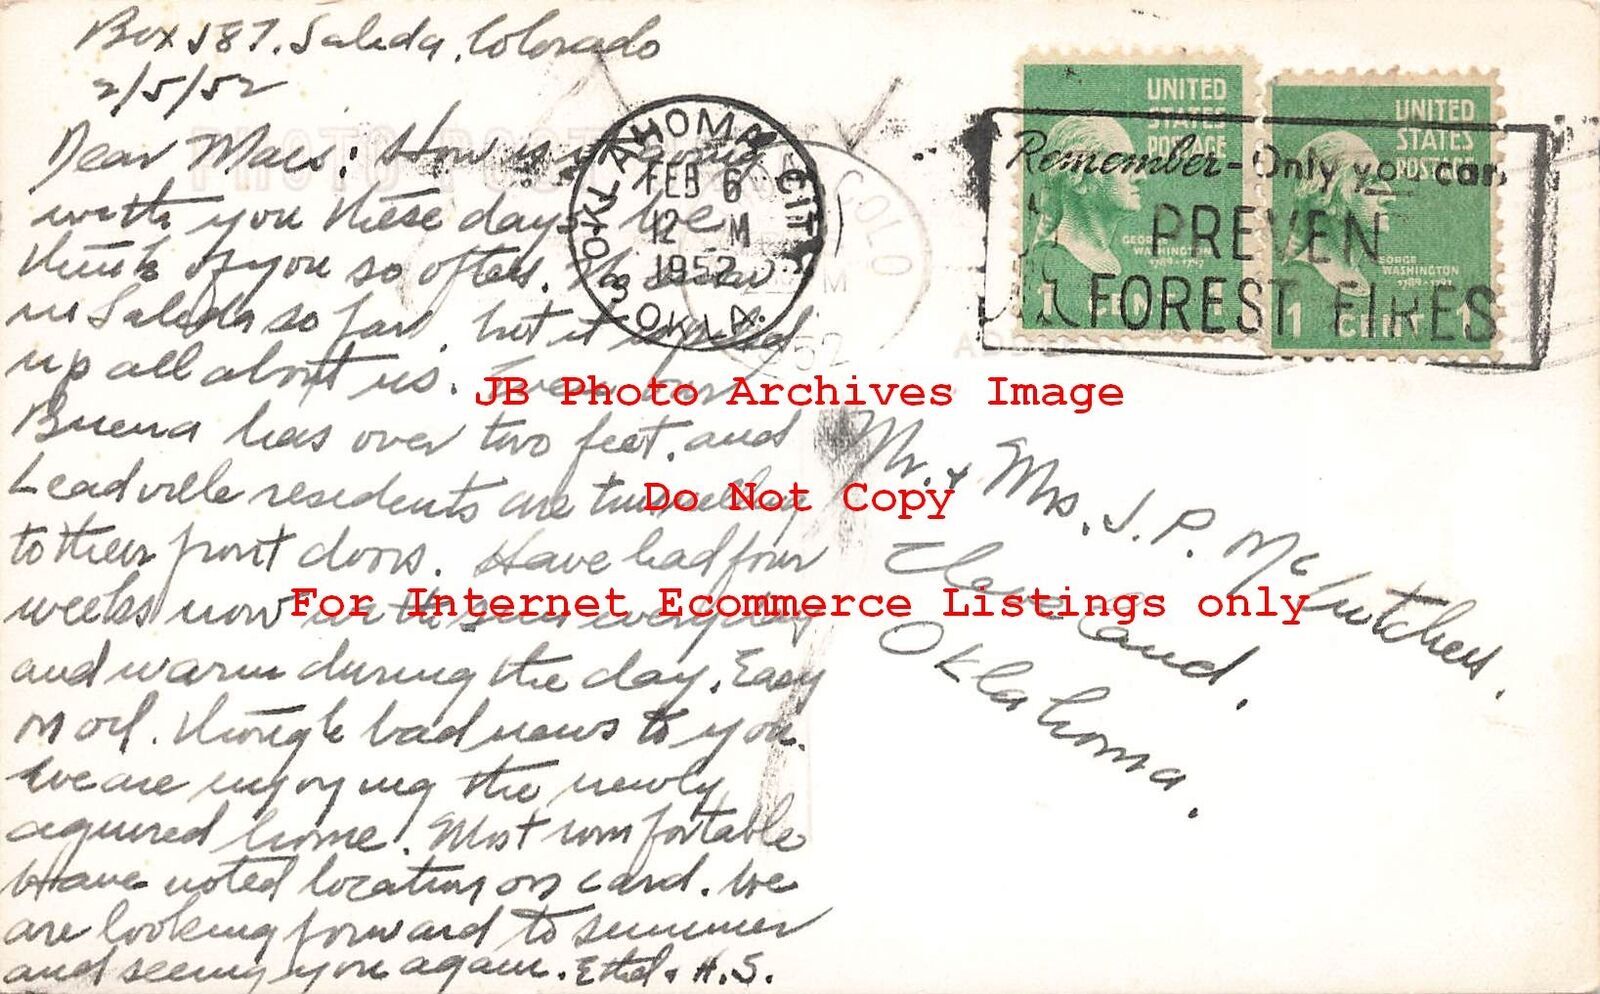 Box 587. Salida, Colorado
2/5/52
Dear Macs: How is it going
with you these days. We
think of you so often. No snow
in Salida so far, but it is piled
up all about us. Even our
Buena has over two feet, and
Leadville residents are tunneling
to their front doors. Have had four
weeks now with sun everyday
and warm during the day. Easy
on oil. though bad news to you.
We are enjoying the newly
aquired home. Most comfortable
Have noted location on card. We
are looking forward to summer
and seeing you again. Ethel & H.S.
OKLAHOMA CITY
FEB 6
12 M
1952
OKLA.
COLO
M
1952
UNITED STATES POSTAGE
GEORGE WASHINGTON
1789-1797
1 CENT 1
UNITED STATES POSTAGE
GEORGE WASHINGTON
1789-1797
1 CENT 1
Remember-Only you can
PREVEN
FOREST FIRES
Mr. & Mrs. J. P. McCutcheon.
Cleveland.
Oklahoma.
JB Photo Archives Image
Do Not Copy
For Internet Ecommerce Listings only